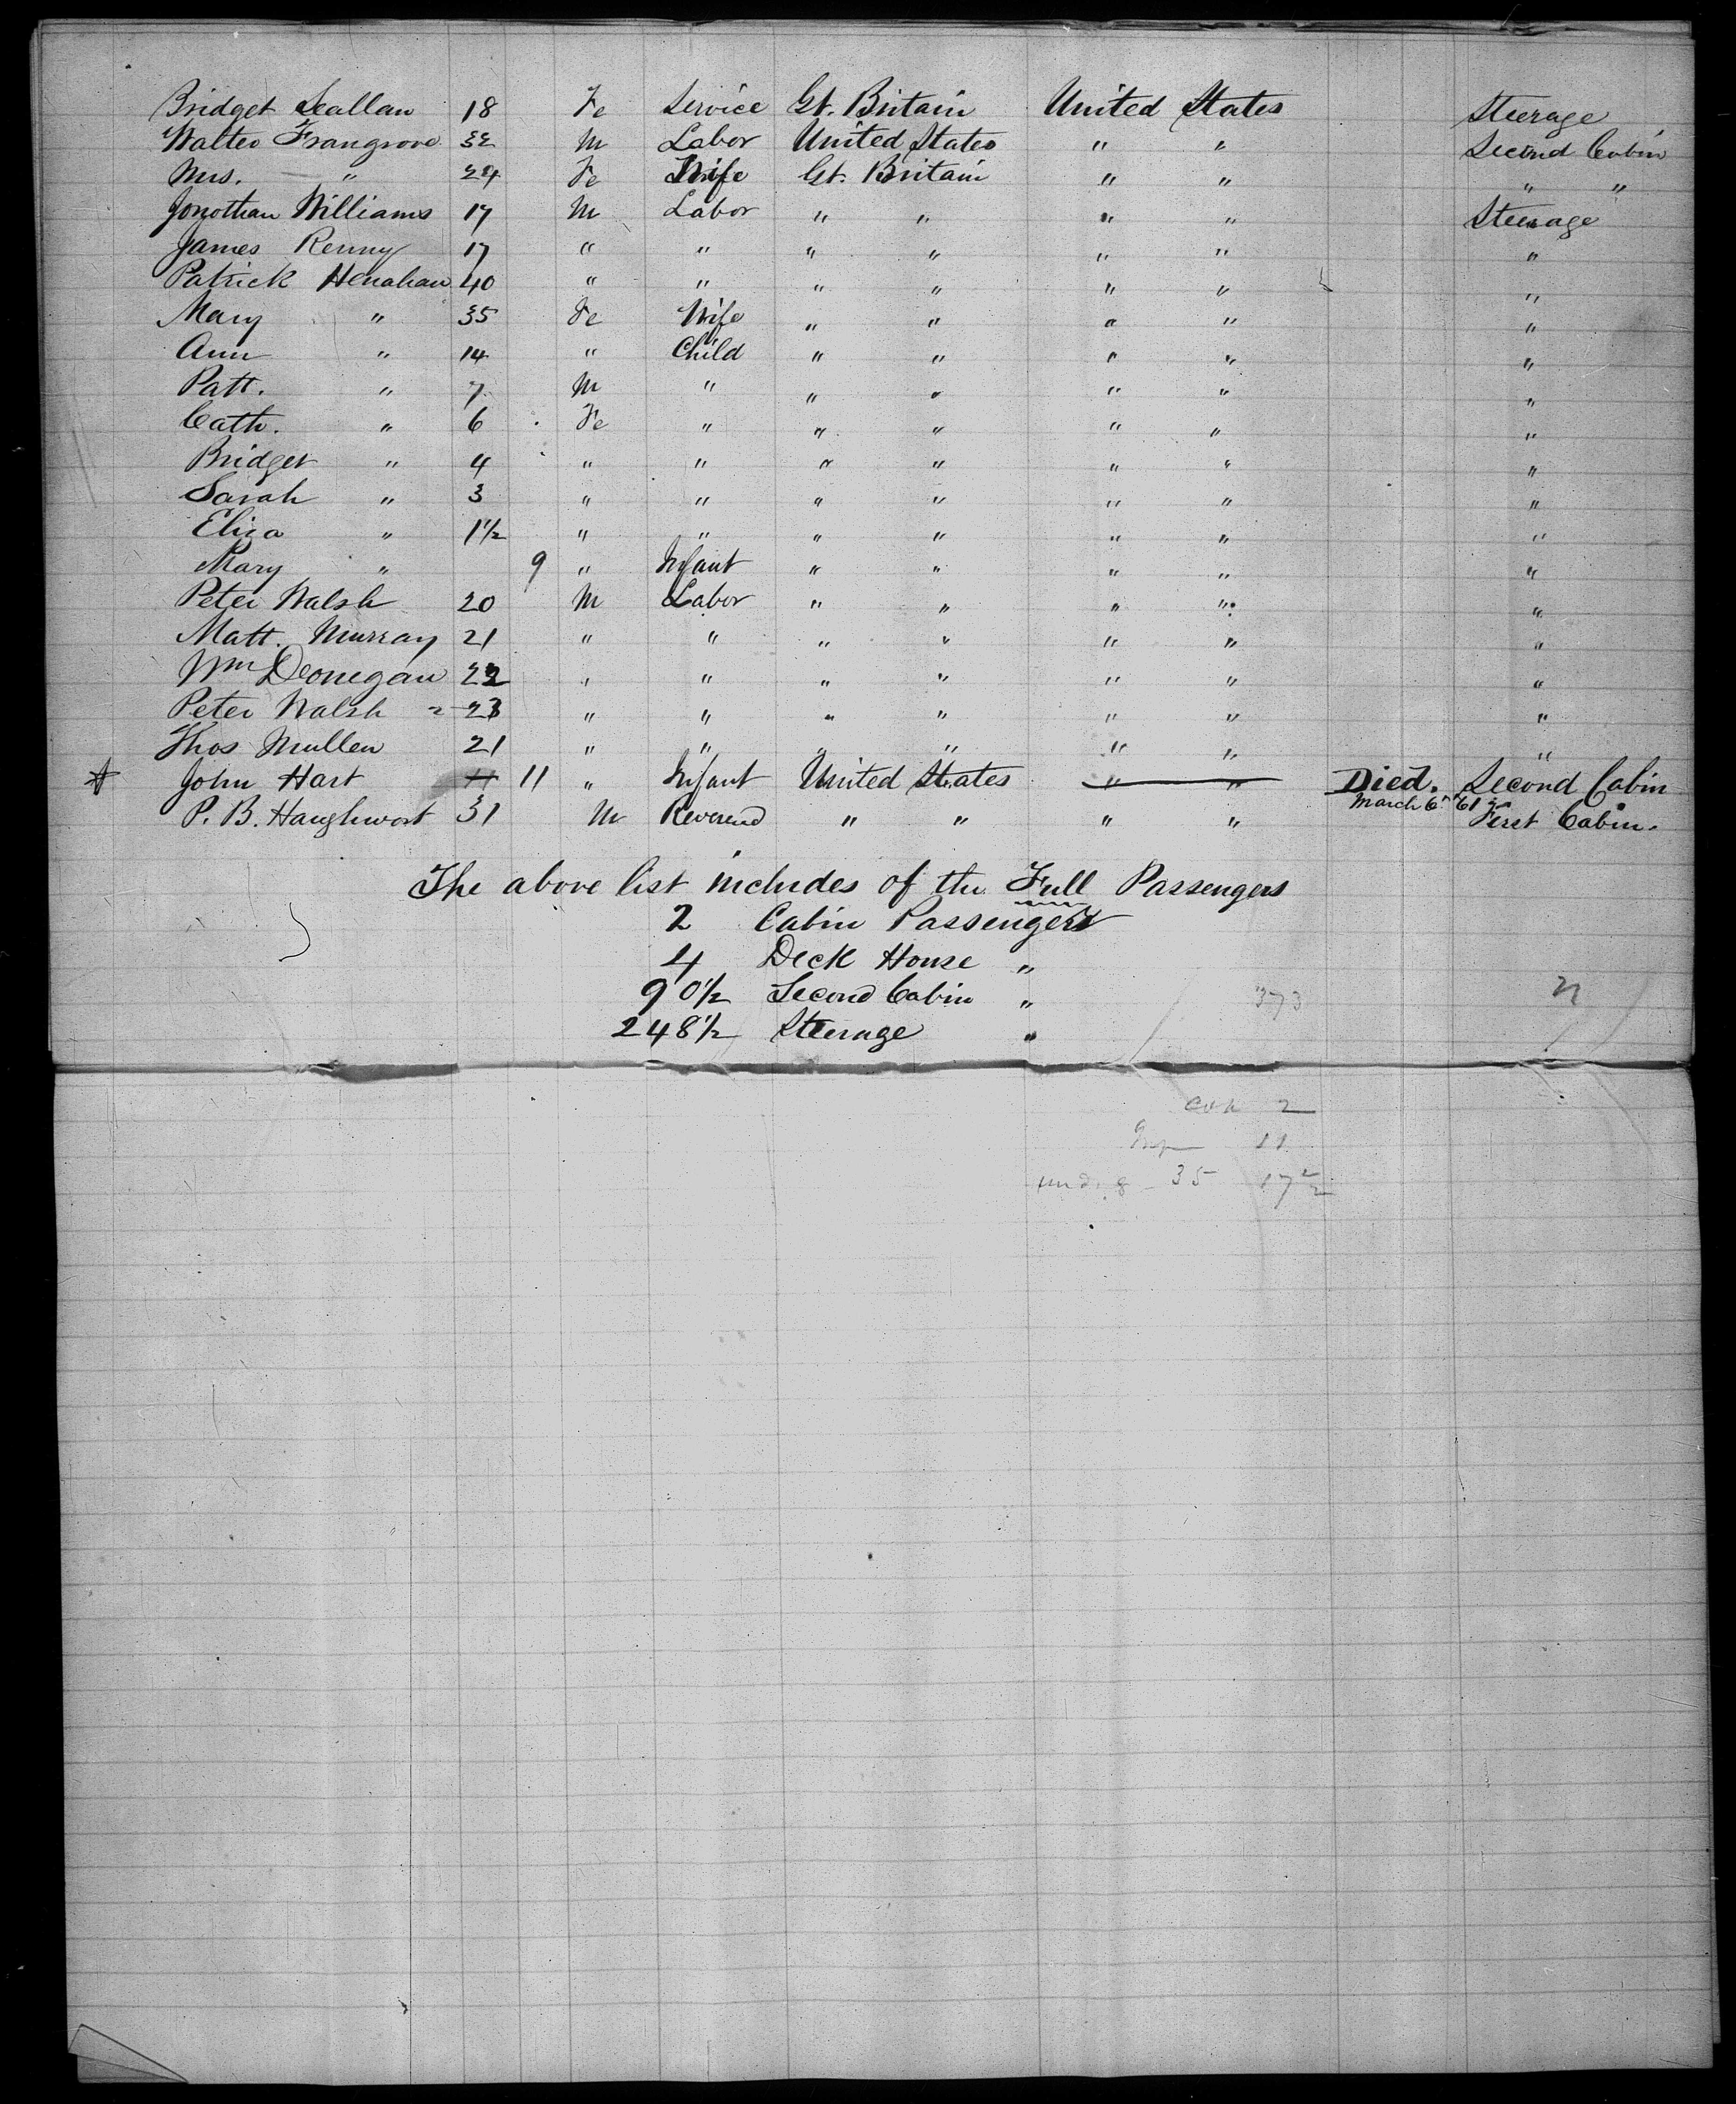 Bridget Scallan 18 Fe Service Gt. Britain United States Steerage
Walter Frangrove 32 M Labor United States " " Second Cabin
Mrs. " 24 Fe Wife Gt. Britain " " " "
Jonothan Williams 17 M Labor " " " " Steerage
James Renny 17 " " " " " " "
Patrick Henahan 40 " " " " " " "
Mary " 35 Fe Wife " " " " "
Ann " 14 " Child " " " " "
Patt. " 7 M " " " " " "
Cath. " 6 Fe " " " " " "
Bridget " 4 " " " " " " "
Sarah " 3 " " " " " " "
Eliza " 1 1/2 " " " " " " "
Mary " 9 " Infant " " " " "
Peter Walsh 20 M Labor " " " " "
Matt. Murray 21 " " " " " " "
Wm Deonegan 22 " " " " " " "
Peter Walsh 2 23 " " " " " " "
Thos Mullen 21 " " " " " " "
John Hart 11 11 " Infant United States " " Died. Second Cabin
March 6th '61
P. B. Haughwort 31 M Reverend " " " " First Cabin.
The above list includes of the Full Passengers
2 Cabin Passengers
4 Deck House "
90 1/2 Second Cabin "
373
248 1/2 Steerage "
2
11
35 17